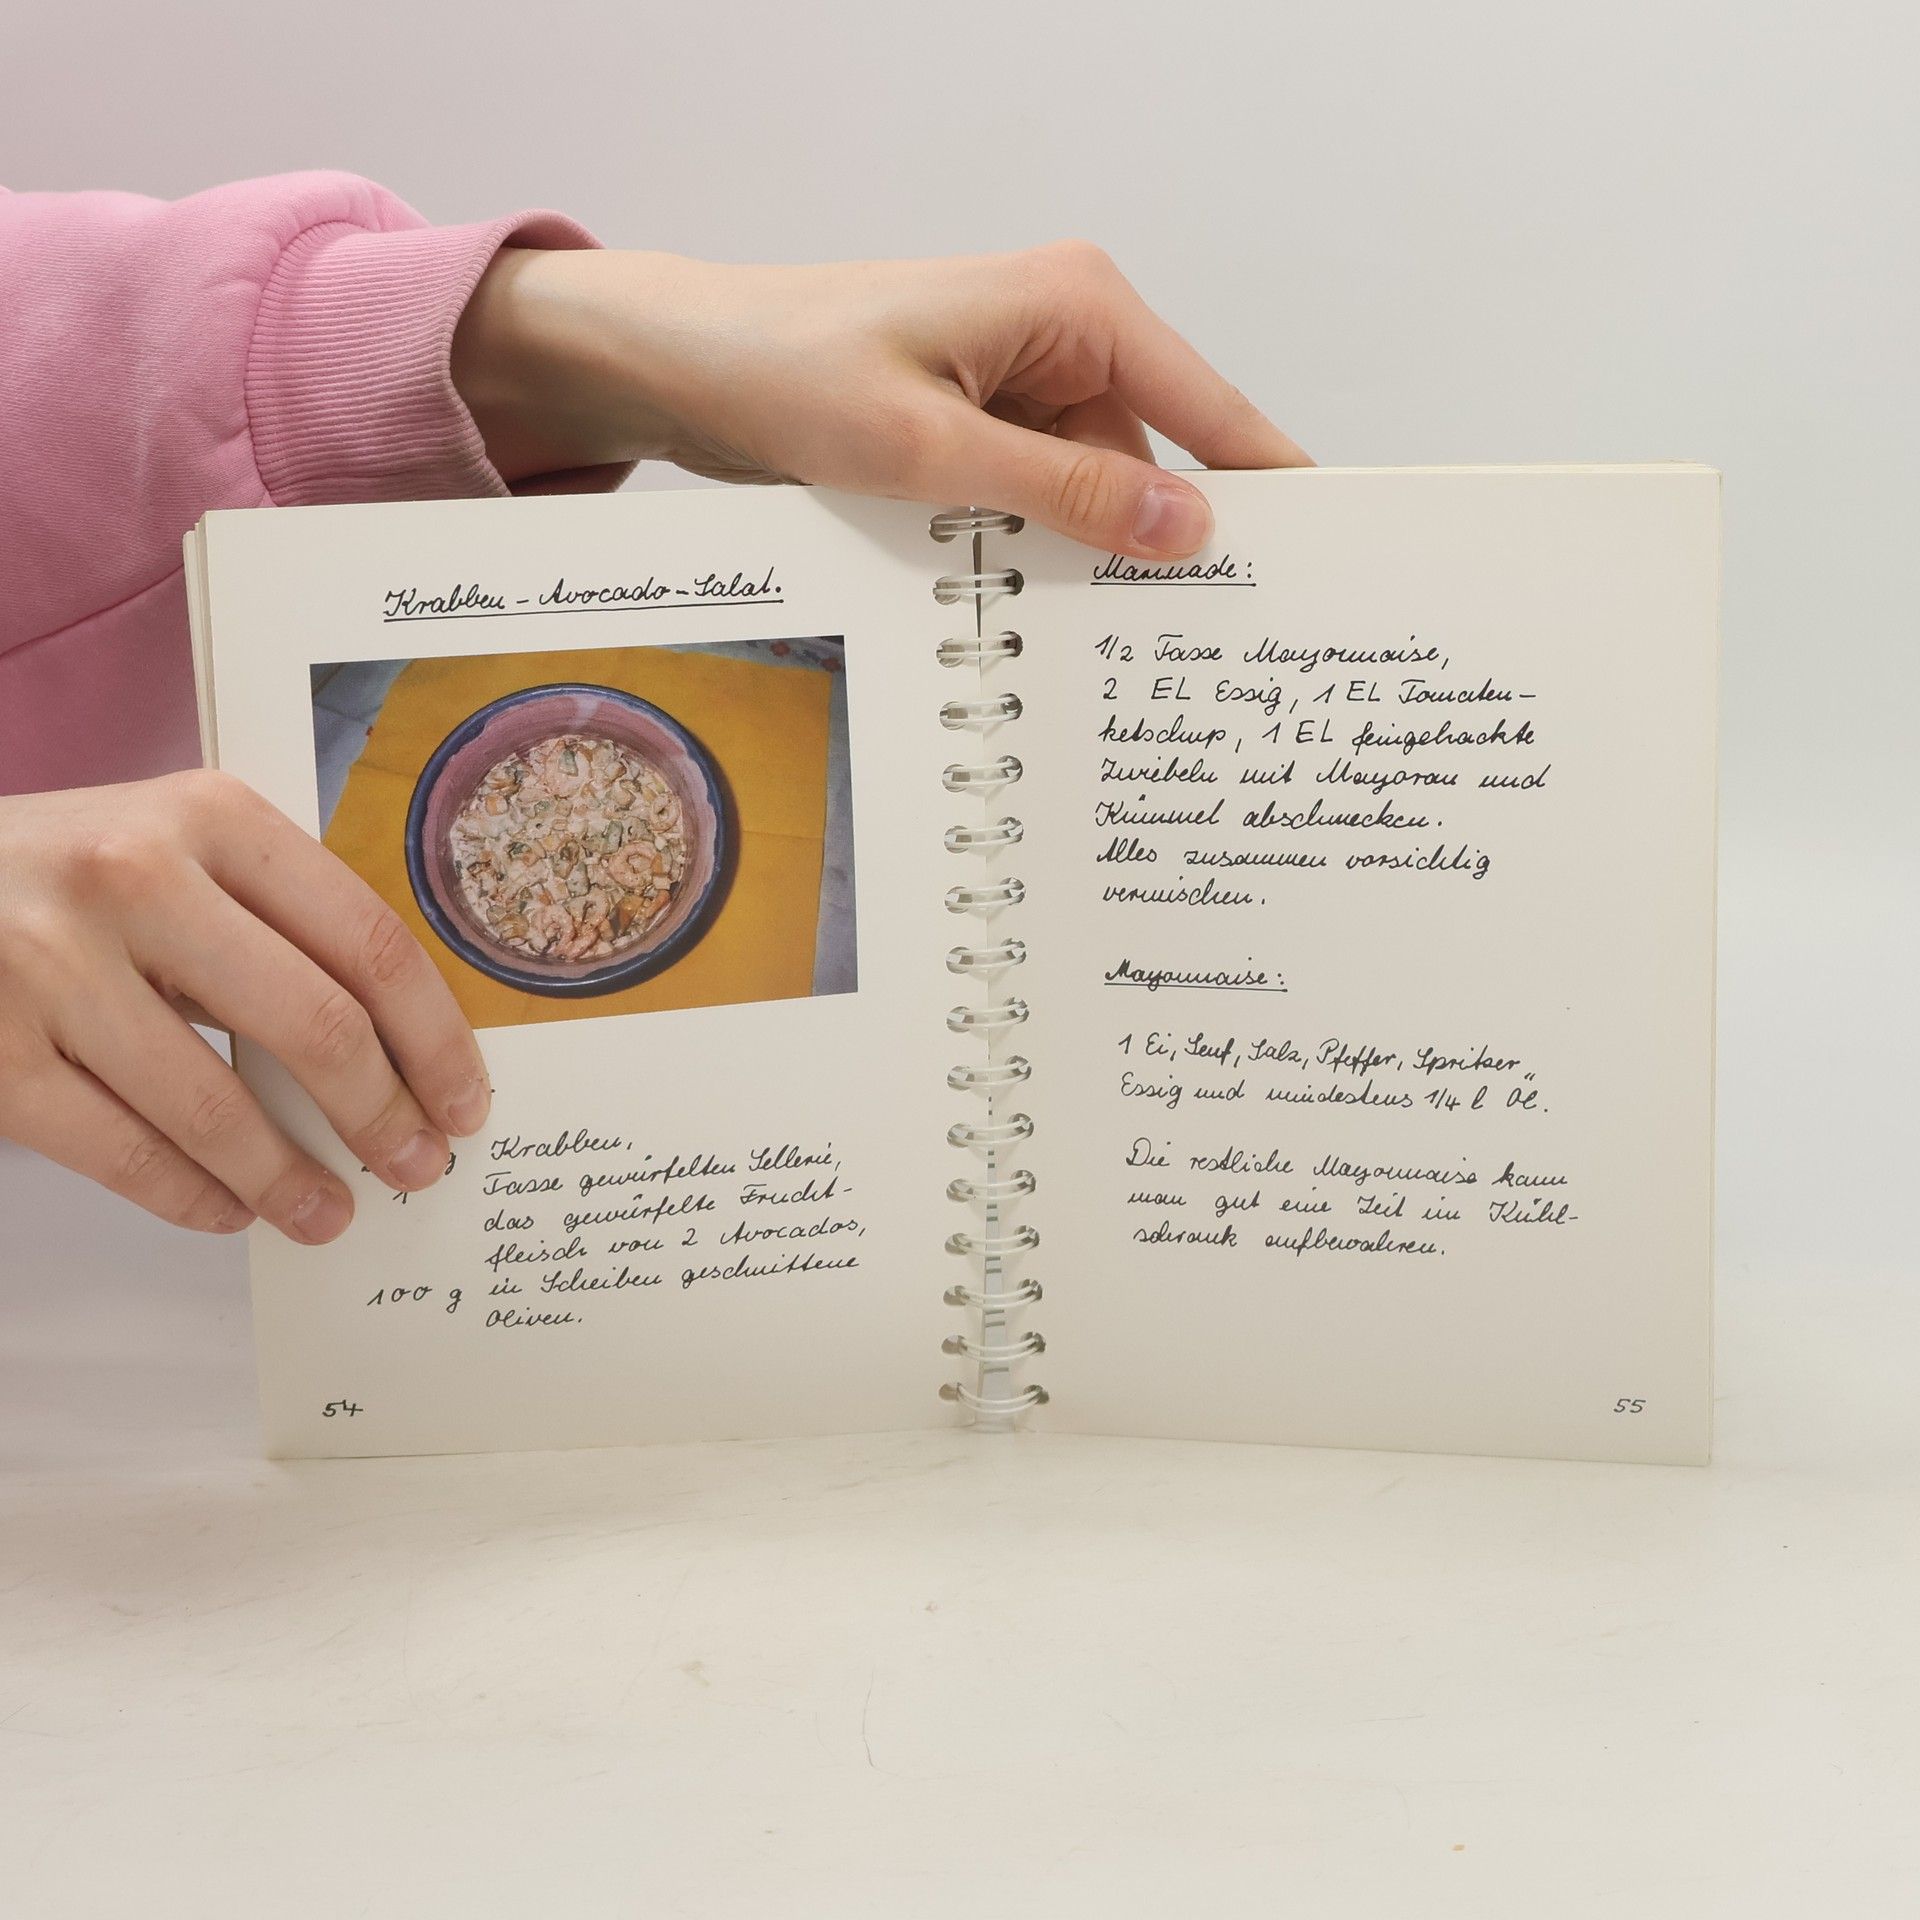 Krabben-Avocado-Salat.
g Krabben,
1 Tasse gewürfelten Sellerie,
das gewürfelte Frucht-
fleisch von 2 Avocados,
100 g in Scheiben geschnittene
Oliven.
54
Marinade:
1/2 Tasse Mayonnaise,
2 EL Essig, 1 EL Tomaten-
ketschup, 1 EL feingehackte
Zwiebeln mit Mayoran und
Kümmel abschmecken.
Alles zusammen vorsichtig
vermischen.
Mayonnaise:
1 Ei, Senf, Salz, Pfeffer, Spritzer
Essig und mindestens 1/4 l Öl.
Die restliche Mayonnaise kann
man gut eine Zeit im Kühl-
schrank aufbewahren.
55